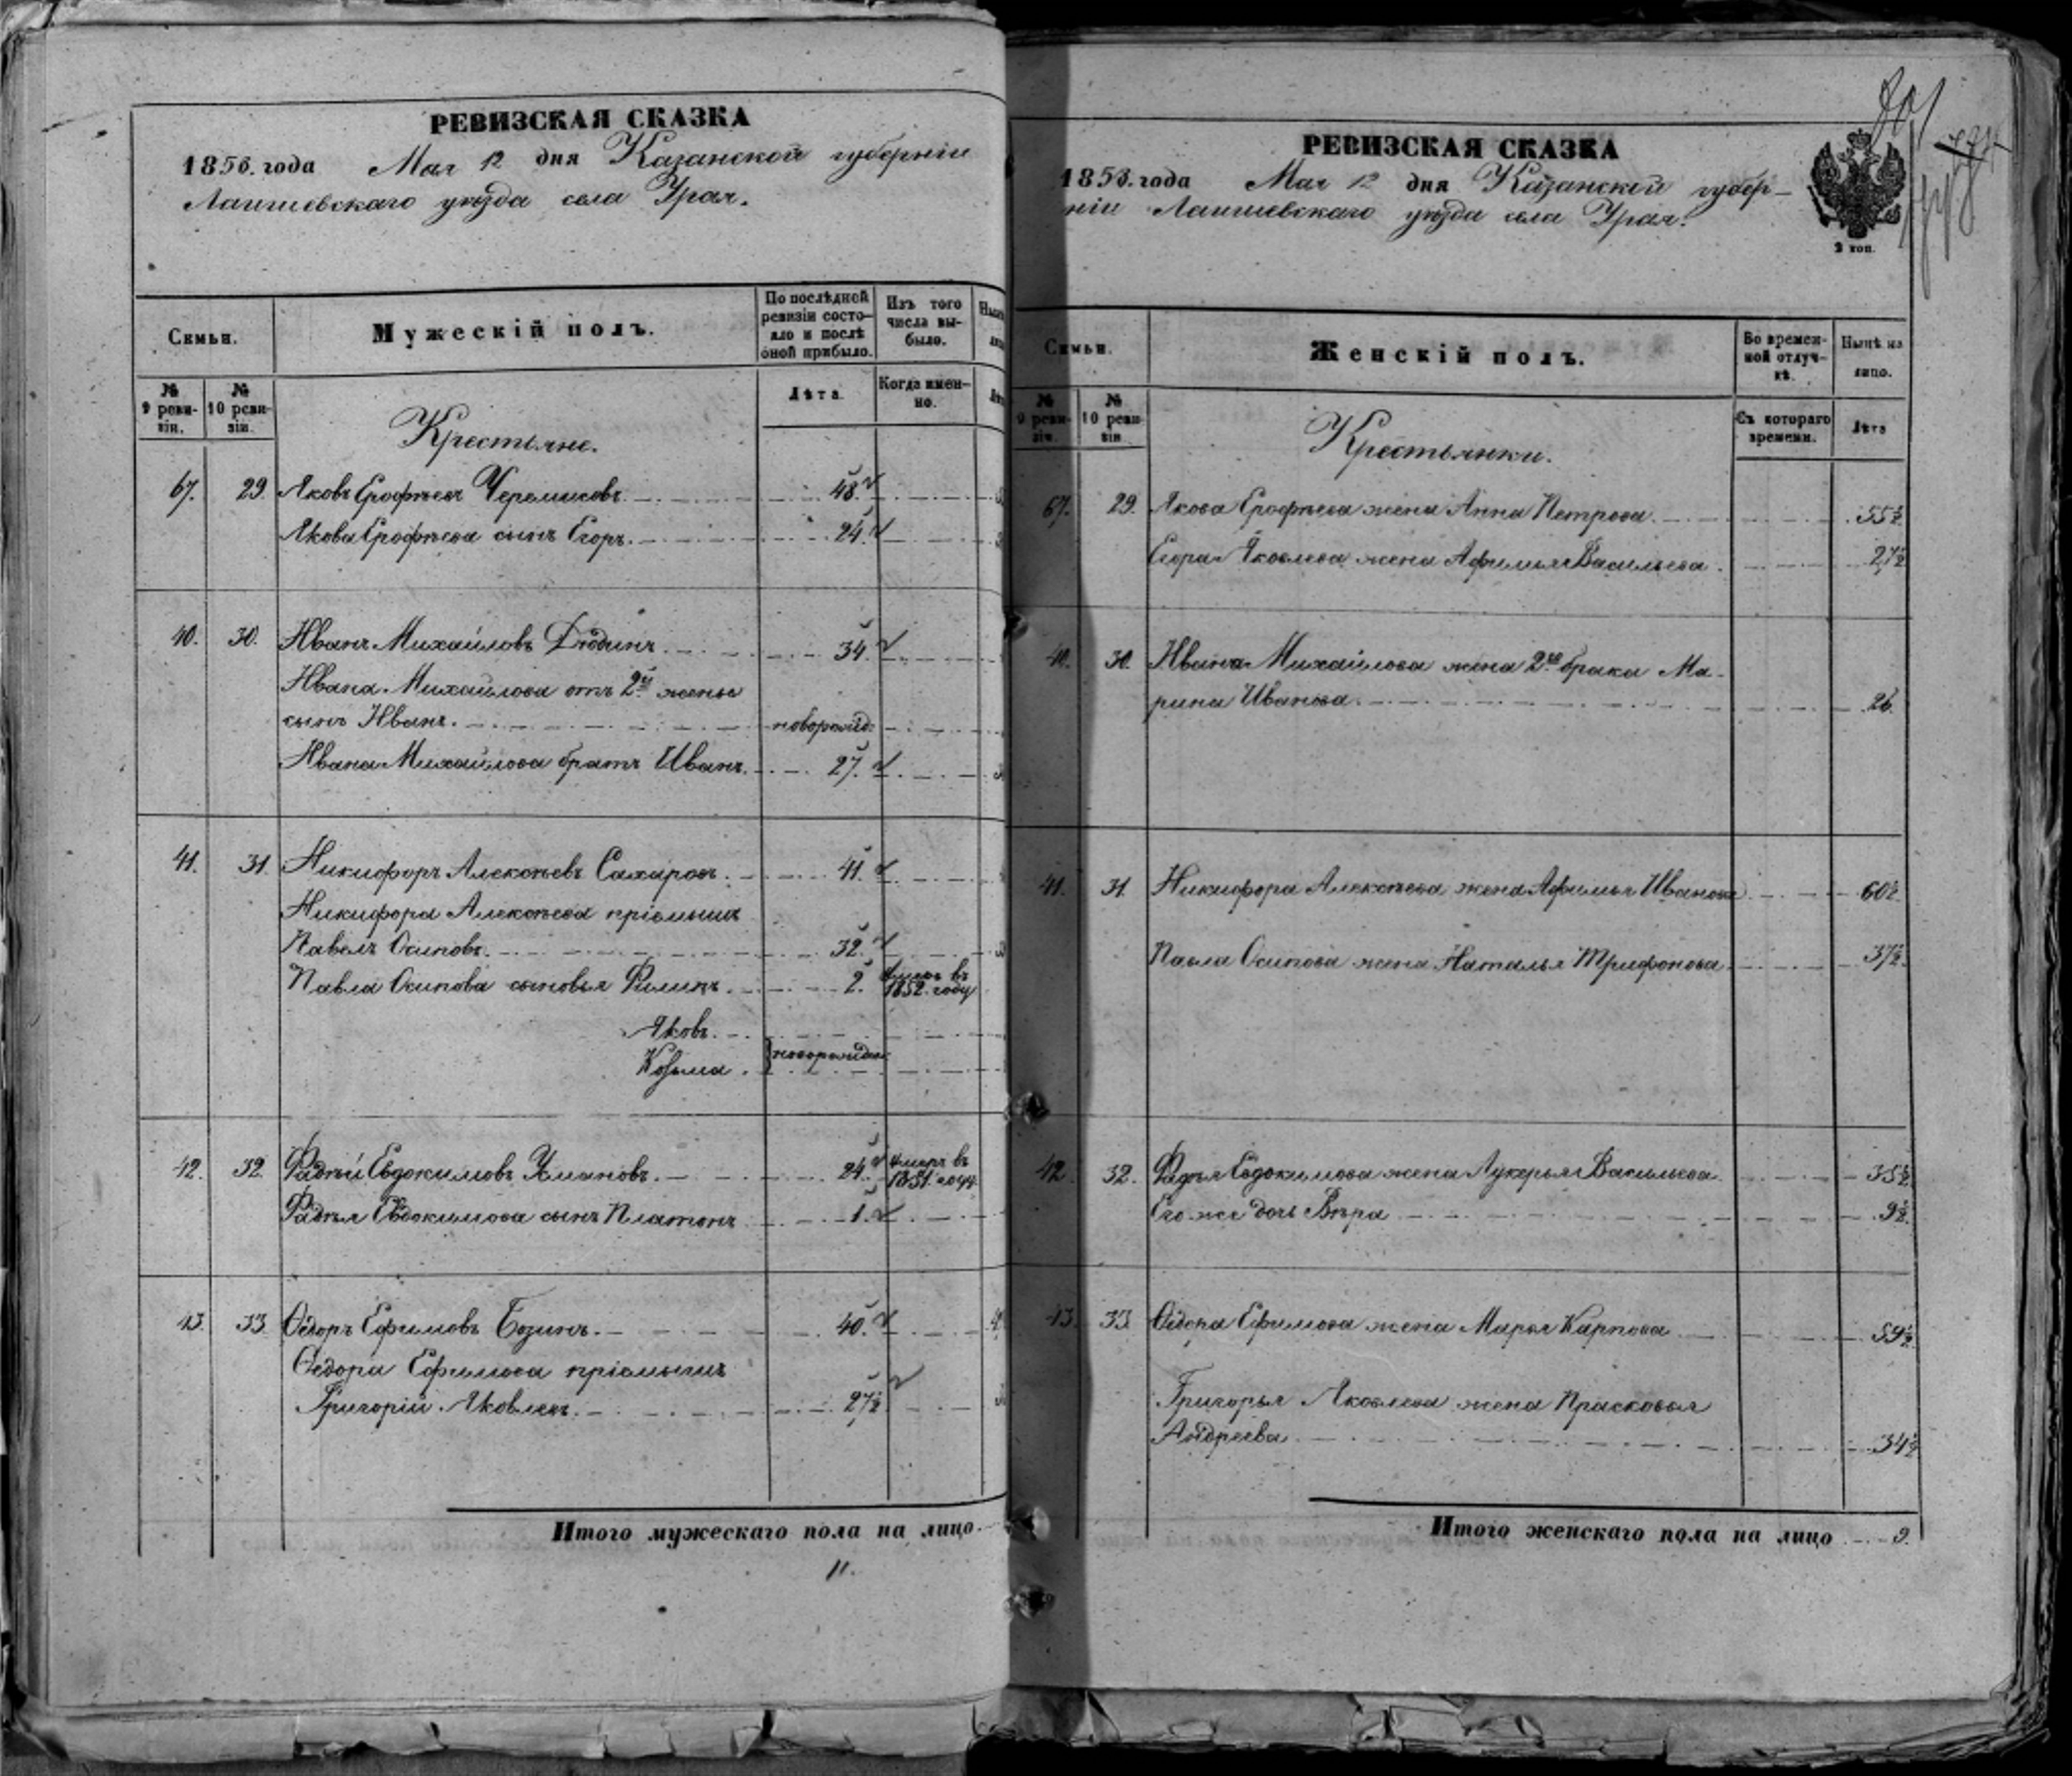 РЕВИЗСКАЯ СКАЗКА
1858. года Мая 12 дня Казанской губерніи
Лаишевскаго уѣзда села Урая.
Семьи.
Мужескій полъ.
По послѣдней ревизіи состояло и послѣ оной прибыло.
Изъ того числа выбыло.
№ 9 ревизіи.
№ 10 ревизіи.
Лѣта.
Когда именно.
Крестьяне.
67. 29. Яковъ Ерофѣевъ Черемисовъ. 48.
Якова Ерофѣева сынъ Егоръ. 24.
40. 30. Иванъ Михайловъ 34.
Ивана Михайлова отъ 2й жены
сынъ Иванъ. новорожд.
Ивана Михайлова братъ Иванъ. 27.
41. 31. Никифоръ Алексѣевъ Сахаровъ. 41.
Никифора Алексѣева пріемышъ
Павелъ Осиповъ. 32.
Павла Осипова сыновья Филипъ. 2. умеръ въ 1852. году
Яковъ.
Козьма. новорожден.
42. 32. Фадѣй Евдокимовъ Улановъ. 24. умеръ въ 1851. году
Фадѣя Евдокимова сынъ Платонъ 1.
43. 33. Ѳедоръ Ефимовъ Бозинъ. 40.
Ѳедора Ефимова пріемышъ
Григорій Яковлевъ. 27½
Итого мужескаго пола на лицо.
11.
РЕВИЗСКАЯ СКАЗКА
1858. года Мая 12 дня Казанской губер-
ніи Лаишевскаго уѣзда села Урая.
2 коп.
Семьи.
Женскій полъ.
Во временной отлучкѣ.
Нынѣ на лицо.
№ 9 ревизіи.
№ 10 ревизіи
Съ котораго времени.
Лѣта
Крестьянки.
67. 29. Якова Ерофѣева жена Анна Петрова. 55½
Егора Яковлева жена Афимья Васильева. 27½
40. 30. Ивана Михайлова жена 2го брака Ма-
рина Иванова. 26.
41. 31. Никифора Алексѣева жена Афимья Иванова 60½.
Павла Осипова жена Наталья Трифонова. 37½.
42. 32. Фадѣя Евдокимова жена Лукерья Васильева 35½
Его же дочь Вѣра 9½.
43. 33. Ѳедора Ефимова жена Марья Карпова 59½
Григорья Яковлева жена Прасковья
Андреева. 34½
Итого женскаго пола на лицо 9.